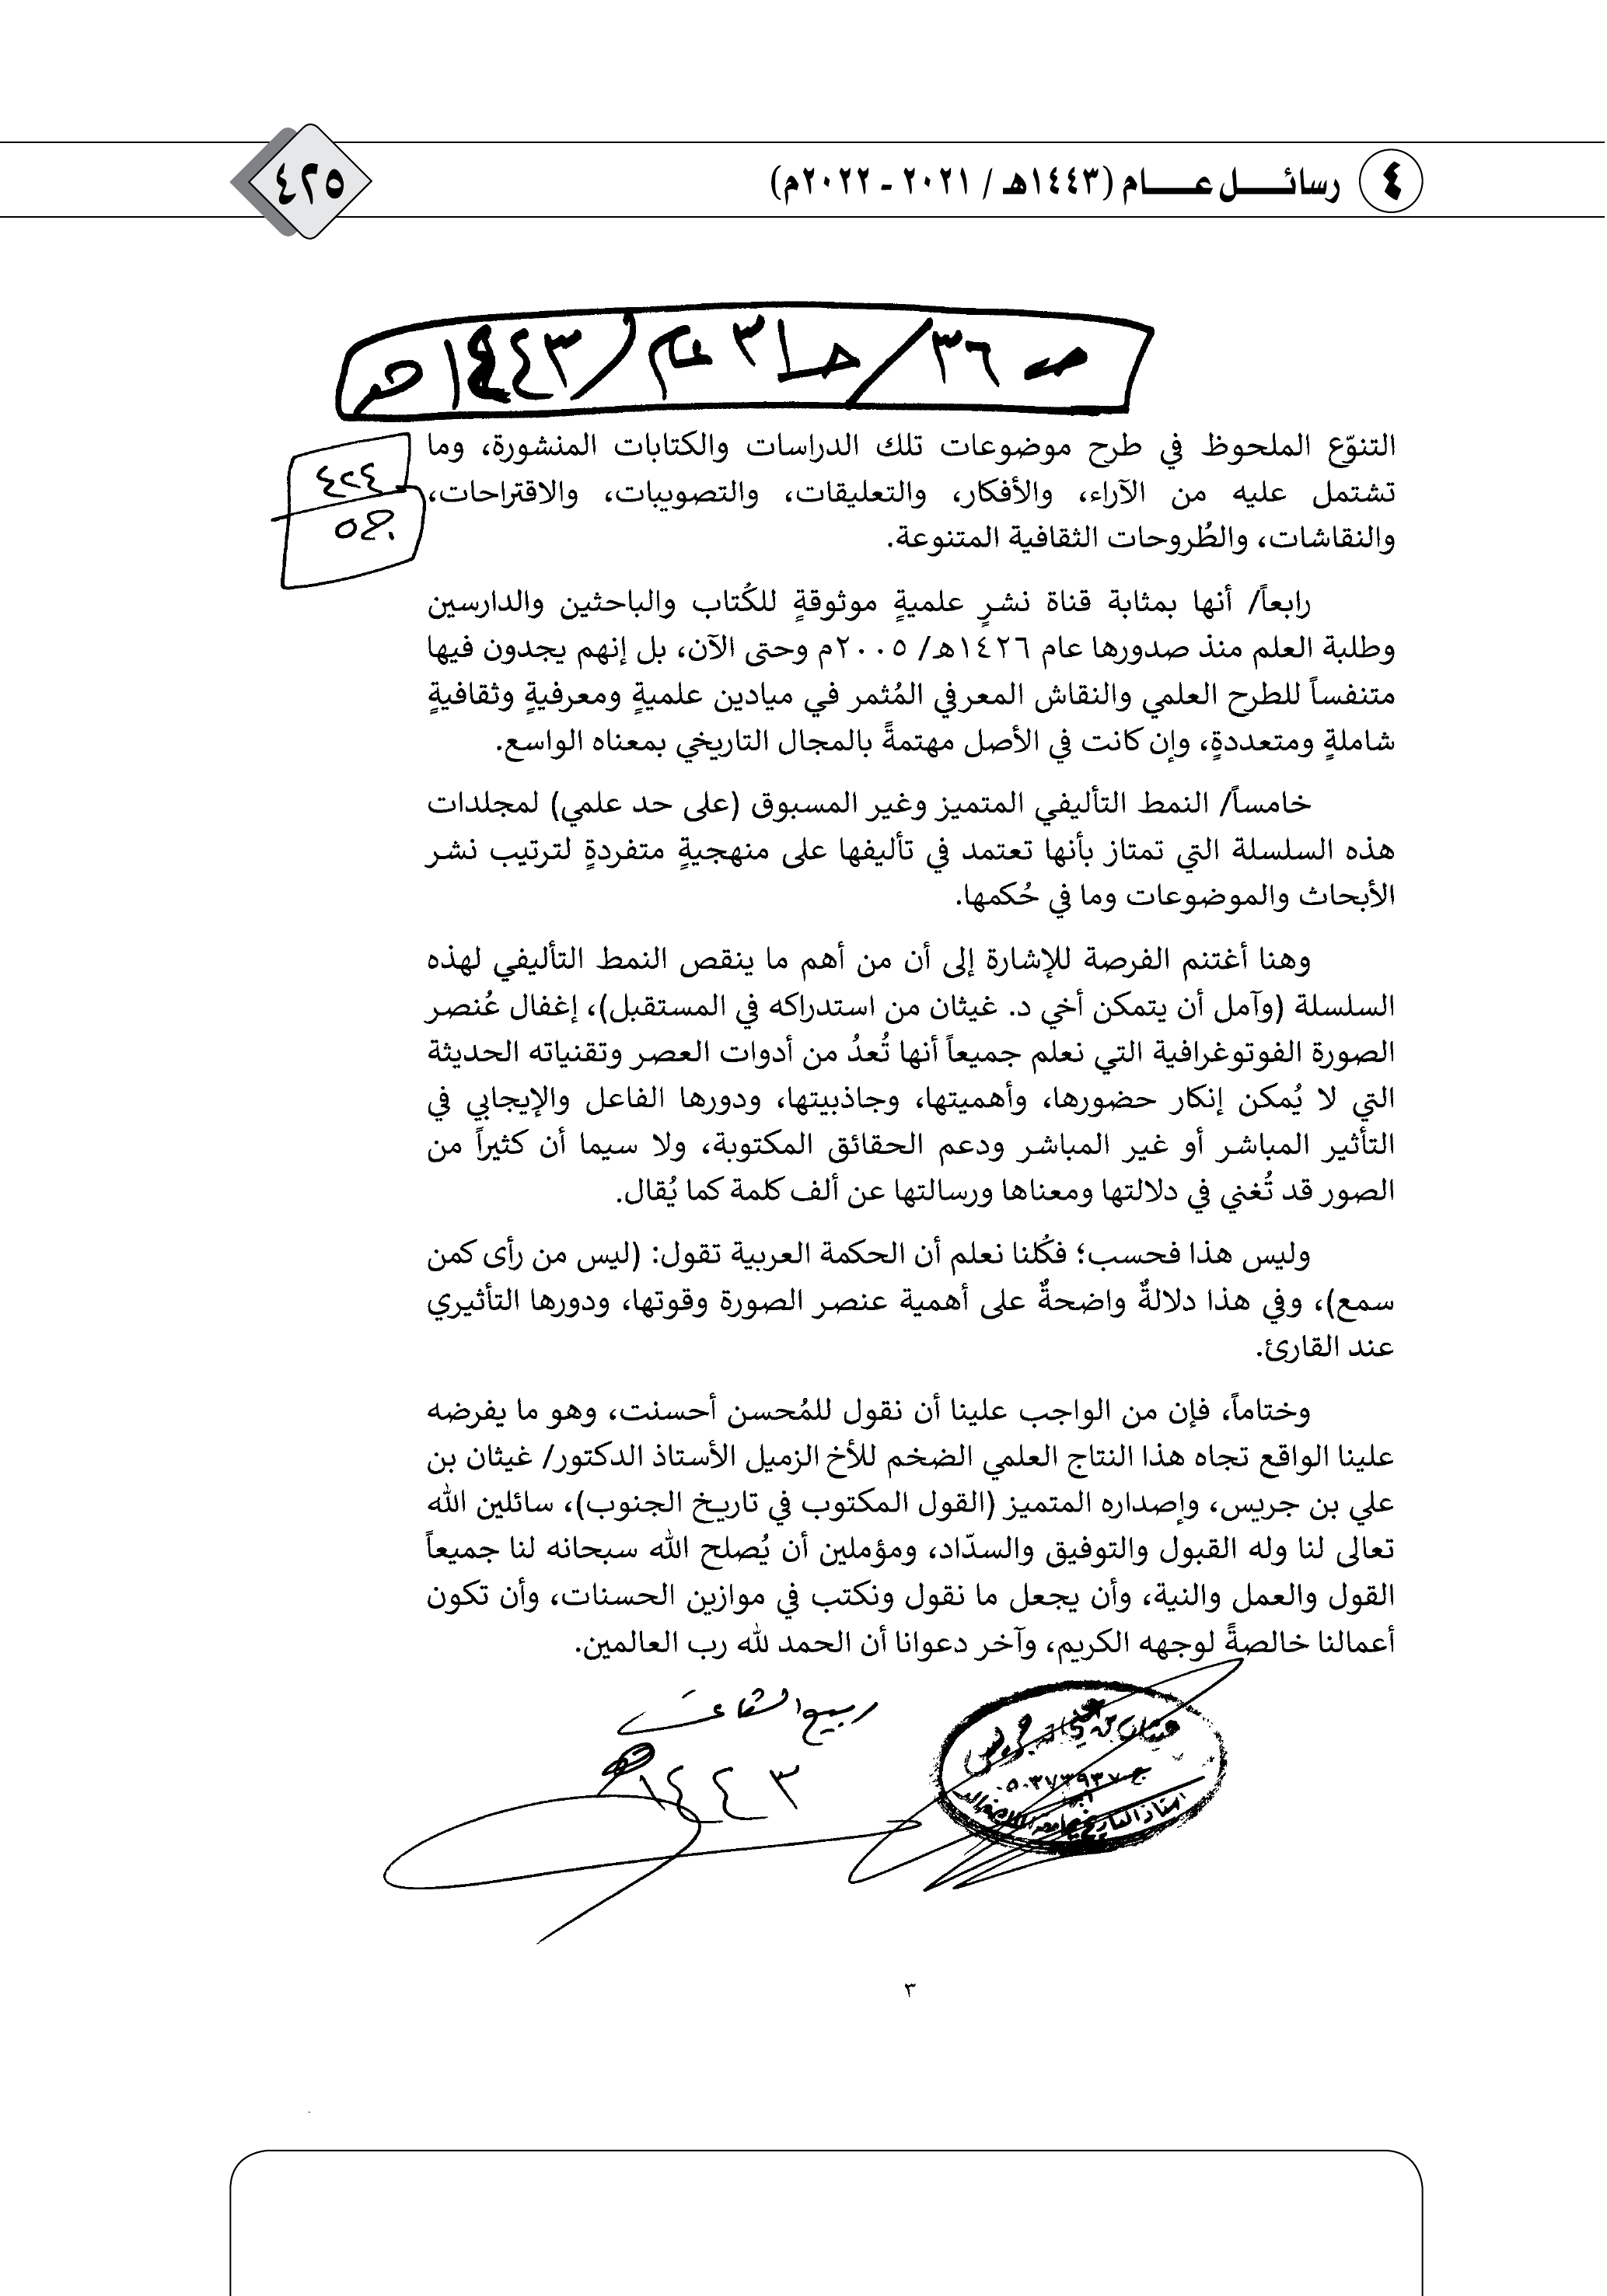 ٤ رسائـــل عـــام (١٤٤٣هـ / ٢٠٢١ - ٢٠٢٢م)
٤٢٥
صـ ٣٦ / حـ ٣١ عام / ١٤٤٣ هـ
التنوّع الملحوظ في طرح موضوعات تلك الدراسات والكتابات المنشورة، وما
٤٢٤
تشتمل عليه من الآراء، والأفكار، والتعليقات، والتصويبات، والاقتراحات،
والنقاشات، والطُروحات الثقافية المتنوعة.
رابعاً/ أنها بمثابة قناة نشرٍ علميةٍ موثوقةٍ للكُتاب والباحثين والدارسين
وطلبة العلم منذ صدورها عام ١٤٢٦هـ/ ٢٠٠٥م وحتى الآن، بل إنهم يجدون فيها
متنفساً للطرح العلمي والنقاش المعرفي المُثمر في ميادين علميةٍ ومعرفيةٍ وثقافيةٍ
شاملةٍ ومتعددةٍ، وإن كانت في الأصل مهتمةً بالمجال التاريخي بمعناه الواسع.
خامساً/ النمط التأليفي المتميز وغير المسبوق (على حد علمي) لمجلدات
هذه السلسلة التي تمتاز بأنها تعتمد في تأليفها على منهجيةٍ متفردةٍ لترتيب نشر
الأبحاث والموضوعات وما في حُكمها.
وهنا أغتنم الفرصة للإشارة إلى أن من أهم ما ينقص النمط التأليفي لهذه
السلسلة (وآمل أن يتمكن أخي د. غيثان من استدراكه في المستقبل)، إغفال عُنصر
الصورة الفوتوغرافية التي نعلم جميعاً أنها تُعدُ من أدوات العصر وتقنياته الحديثة
التي لا يُمكن إنكار حضورها، وأهميتها، وجاذبيتها، ودورها الفاعل والإيجابي في
التأثير المباشر أو غير المباشر ودعم الحقائق المكتوبة، ولا سيما أن كثيراً من
الصور قد تُغني في دلالتها ومعناها ورسالتها عن ألف كلمة كما يُقال.
وليس هذا فحسب؛ فكُلنا نعلم أن الحكمة العربية تقول: (ليس من رأى كمن
سمع)، وفي هذا دلالةٌ واضحةٌ على أهمية عنصر الصورة وقوتها، ودورها التأثيري
عند القارئ.
وختاماً، فإن من الواجب علينا أن نقول للمُحسن أحسنت، وهو ما يفرضه
علينا الواقع تجاه هذا النتاج العلمي الضخم للأخ الزميل الأستاذ الدكتور/ غيثان بن
علي بن جريس، وإصداره المتميز (القول المكتوب في تاريخ الجنوب)، سائلين الله
تعالى لنا وله القبول والتوفيق والسدّاد، ومؤملين أن يُصلح الله سبحانه لنا جميعاً
القول والعمل والنية، وأن يجعل ما نقول ونكتب في موازين الحسنات، وأن تكون
أعمالنا خالصةً لوجهه الكريم، وآخر دعوانا أن الحمد لله رب العالمين.
ربيع الثاني
١٤٤٣هـ
٣